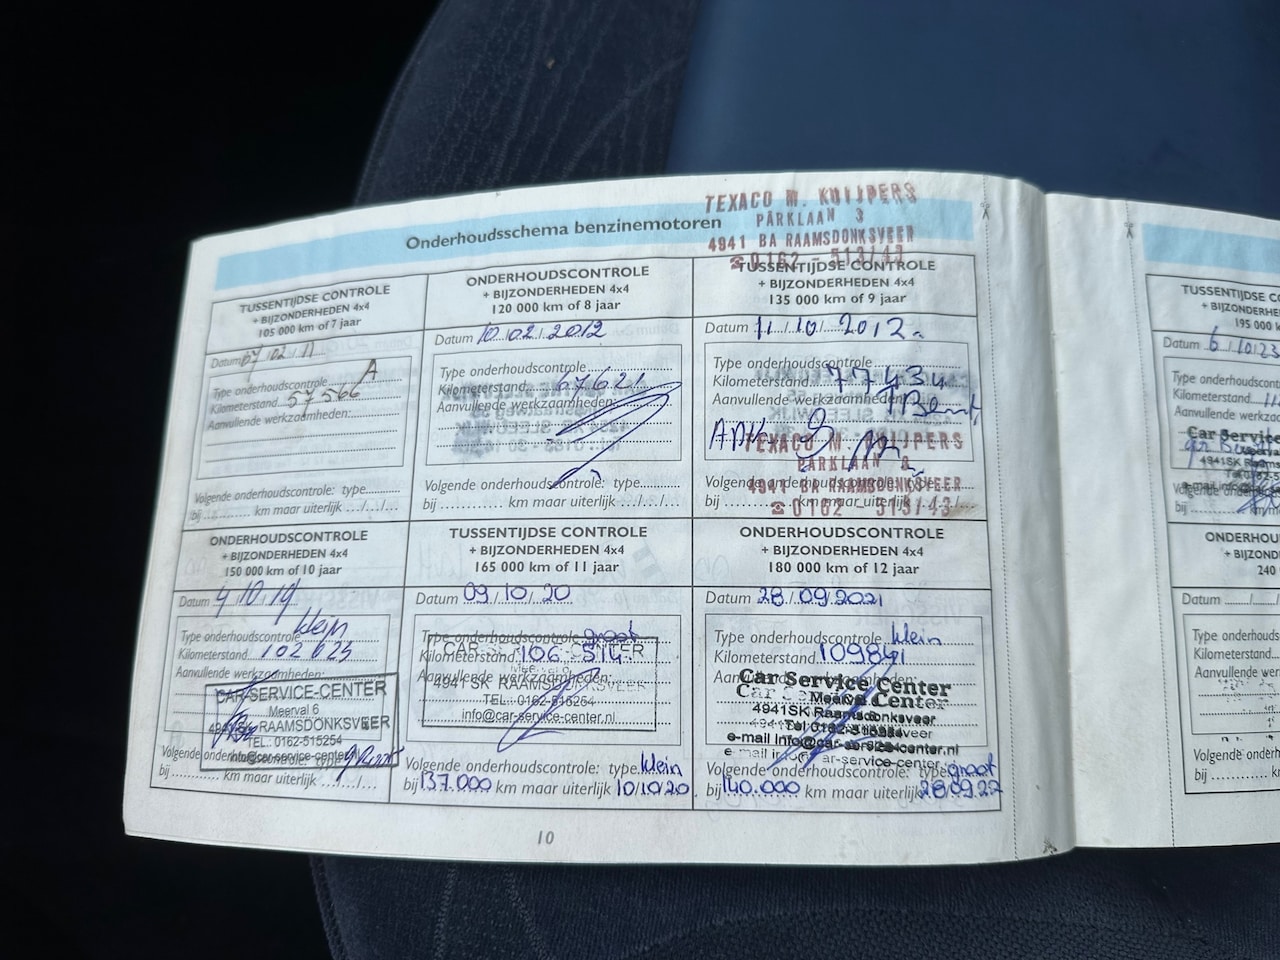 TEXACO M. KUIJPERS
PARKLAAN 3
4941 BA RAAMSDONKSVEER
☎ 0162 - 513143
Onderhoudsschema benzinemotoren
TUSSENTIJDSE CONTROLE
+ BIJZONDERHEDEN 4x4
105 000 km of 7 jaar
Datum 07/02/11
Type onderhoudscontrole A
Kilometerstand 57566
Aanvullende werkzaamheden:
Volgende onderhoudscontrole: type
bij km maar uiterlijk
ONDERHOUDSCONTROLE
+ BIJZONDERHEDEN 4x4
120 000 km of 8 jaar
Datum 10/02/2012
Type onderhoudscontrole
Kilometerstand 67621
Aanvullende werkzaamheden:
Volgende onderhoudscontrole: type
bij km maar uiterlijk
TUSSENTIJDSE CONTROLE
+ BIJZONDERHEDEN 4x4
135 000 km of 9 jaar
Datum 11/10/2012
Type onderhoudscontrole
Kilometerstand 77434
Aanvullende werkzaamheden
APK
TEXACO M. KUIJPERS
PARKLAAN 3
4941 BA RAAMSDONKSVEER
☎ 0162 - 513143
Volgende onderhoudscontrole: type
bij km maar uiterlijk
ONDERHOUDSCONTROLE
+ BIJZONDERHEDEN 4x4
150 000 km of 10 jaar
Datum 4/10/19
Type onderhoudscontrole klein
Kilometerstand 102625
Aanvullende werkzaamheden:
CAR-SERVICE-CENTER
Meerval 6
4941SK RAAMSDONKSVEER
TEL.: 0162-515254
info@car-service-center.nl
Volgende onderhoudscontrole: type groot
bij km maar uiterlijk
TUSSENTIJDSE CONTROLE
+ BIJZONDERHEDEN 4x4
165 000 km of 11 jaar
Datum 09/10/20
Type onderhoudscontrole groot
Kilometerstand 106 514
Aanvullende werkzaamheden:
CAR-SERVICE-CENTER
Meerval 6
4941SK RAAMSDONKSVEER
TEL.: 0162-515254
info@car-service-center.nl
Volgende onderhoudscontrole: type klein
bij 137.000 km maar uiterlijk 10/10/20
ONDERHOUDSCONTROLE
+ BIJZONDERHEDEN 4x4
180 000 km of 12 jaar
Datum 28/09/2021
Type onderhoudscontrole klein
Kilometerstand 109841
Car Service Center
Meerval 6
4941SK Raamsdonksveer
e-mail info@car-service-center.nl
Volgende onderhoudscontrole: type groot
bij 140.000 km maar uiterlijk 28/09/22
10
TUSSENTIJDSE
+ BIJZONDERHE
195 000
Datum 6/10/23
Type onderhoudsc
Kilometerstand
Aanvullende
Car Service
4941SK
bij
ONDERHOUD
+ BIJZOND
240
Datum
Type onderhouds
Kilometerstand
Aanvullende
Volgende onder
bij